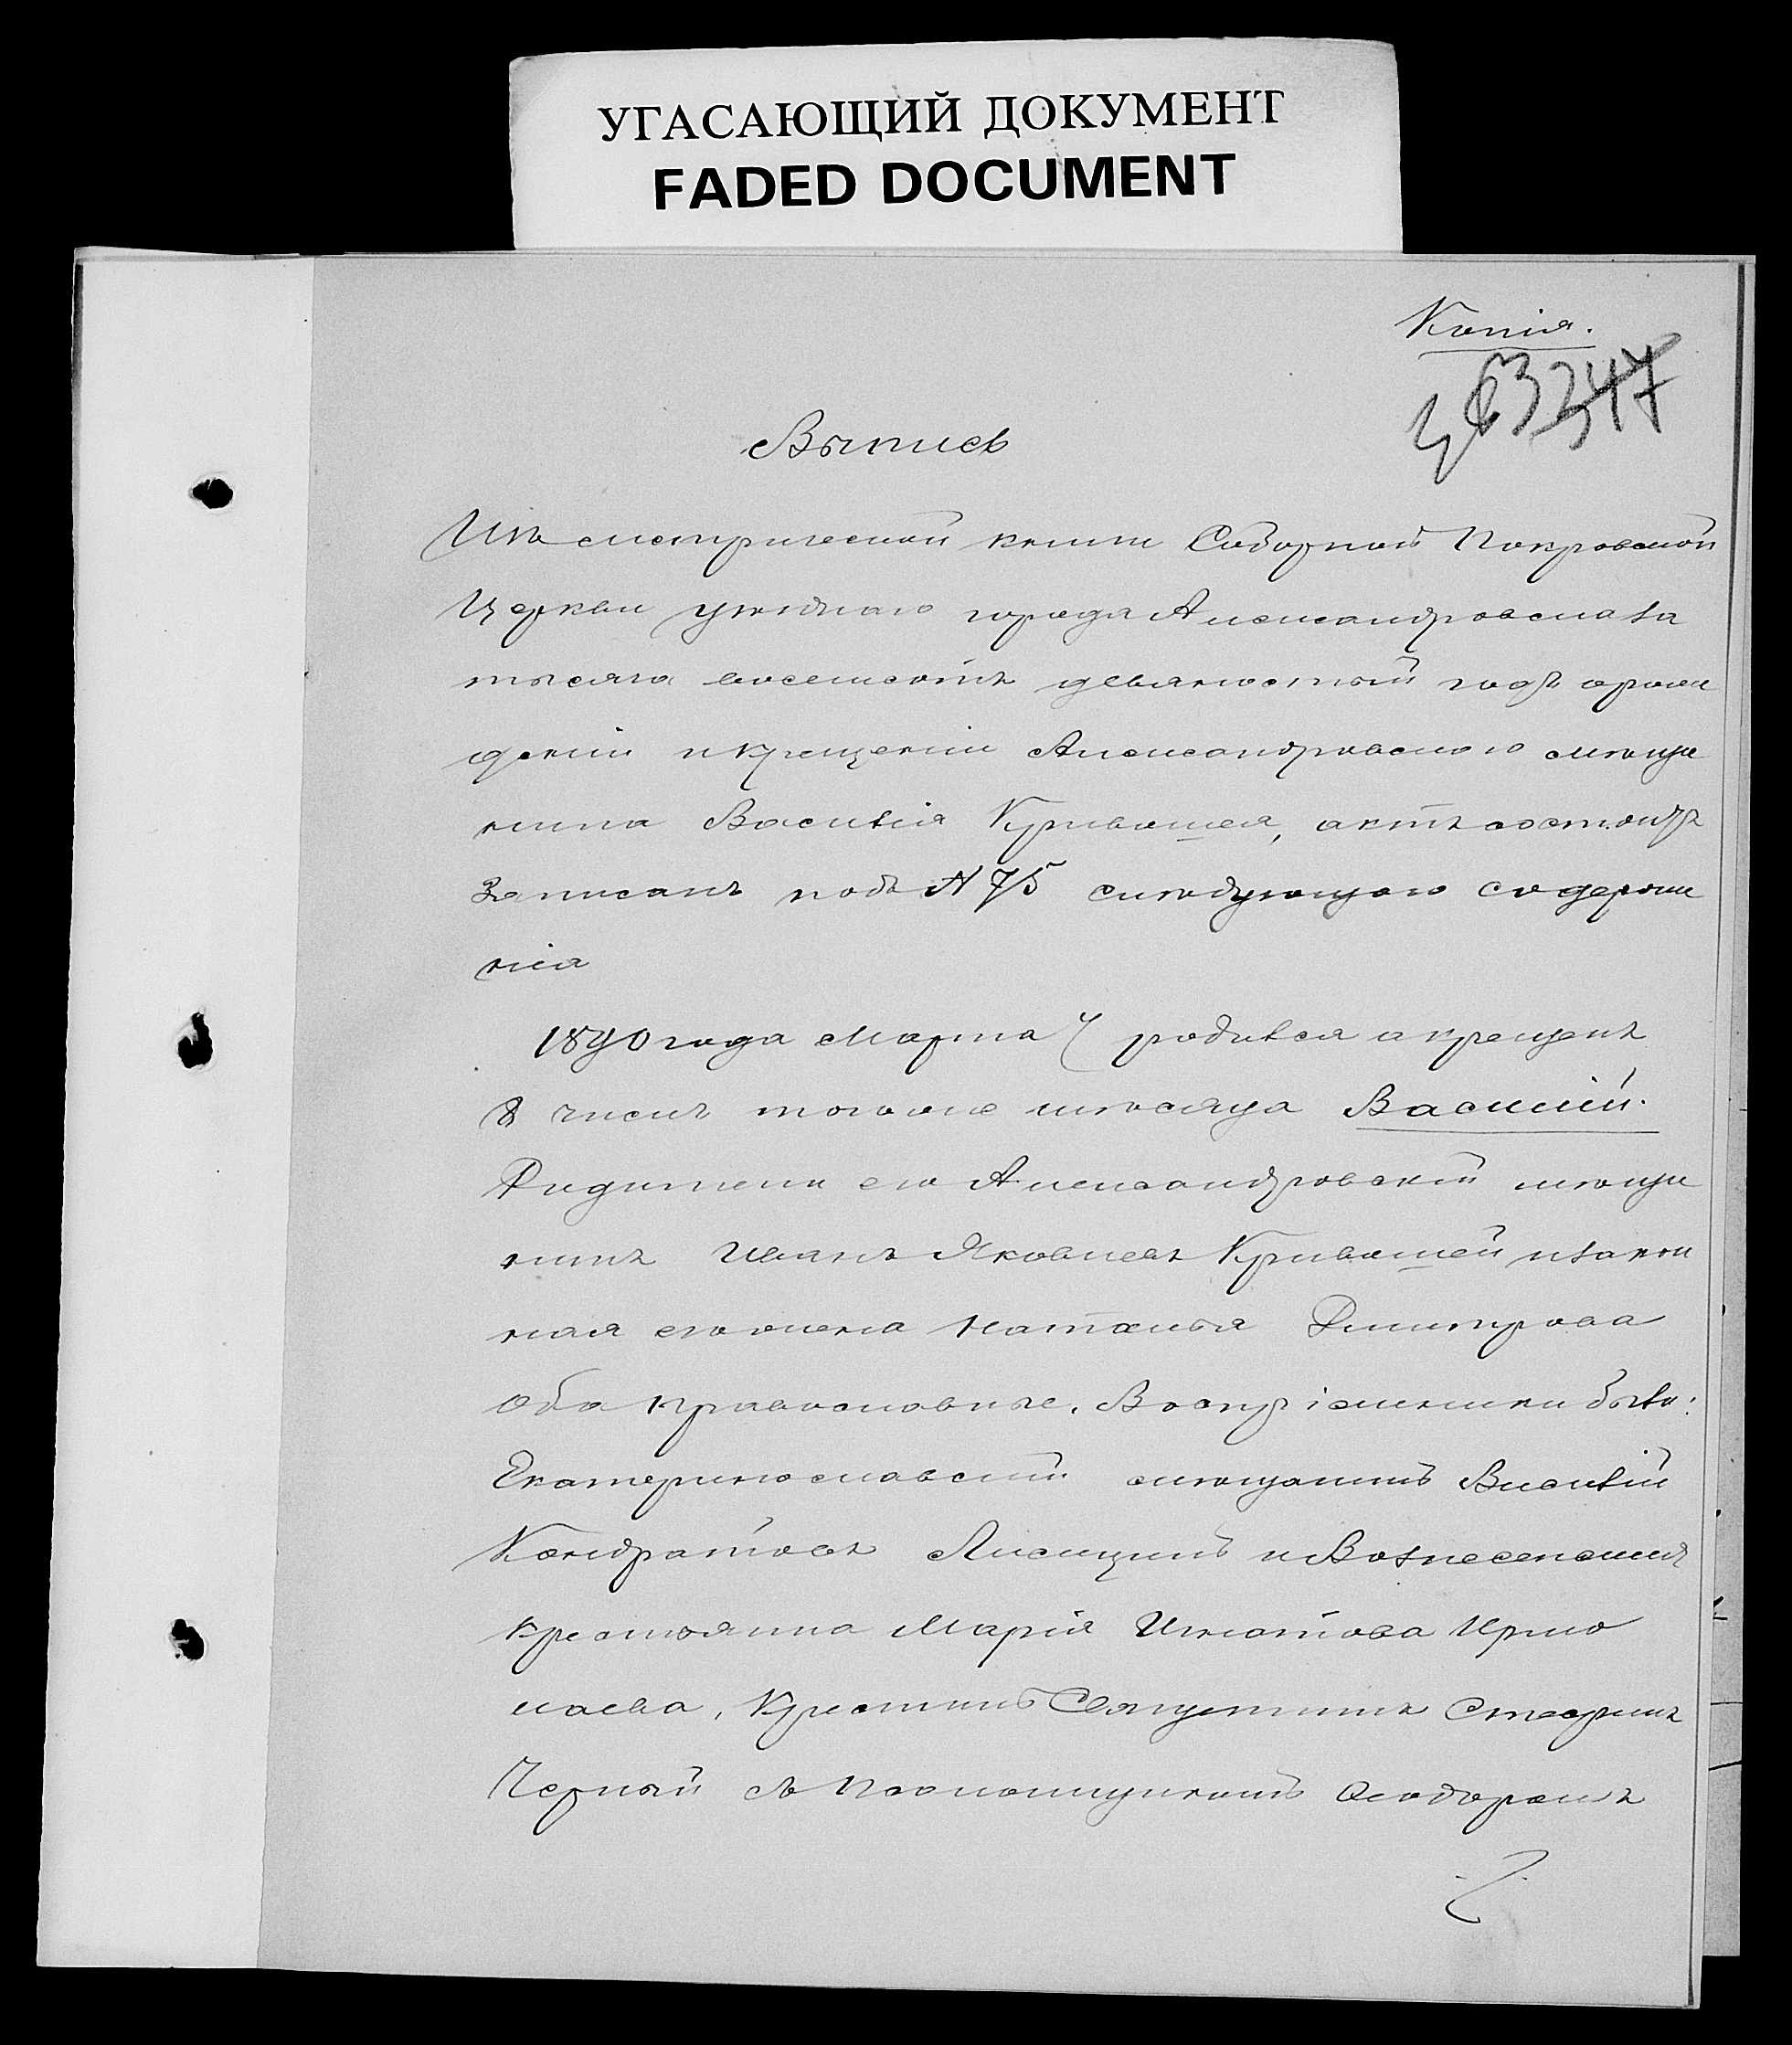 УГАСАЮЩИЙ ДОКУМЕНТ
FADED DOCUMENT
Копія.
Выпись
Изъ метрической книги Соборной Покровской
Церкви уѣзднаго города Александровска за
тысяча восемсотъ девяностый годъ о рож
деніи и крещеніи Александровскаго мѣща
нина Василія Кривошея, актъ
записанъ подъ № 75 слѣдующаго содержа
нія
1890 года Марта 4 родился а крещенъ
8 числа того же мѣсяца Василій.
Родители его Александровскій мѣща
нинъ Иванъ Яковлевъ Кривошей и закон
ная его жена Наталья Дмитрова
оба православные. Воспріемники были:
Екатеринославскій мѣщанинъ Василій
Кондратовъ Лисицинъ и Вознесенская
крестьянка Марія Игнатова
Крестилъ Священникъ
Черный съ Псаломщикомъ Ѳеодоромъ